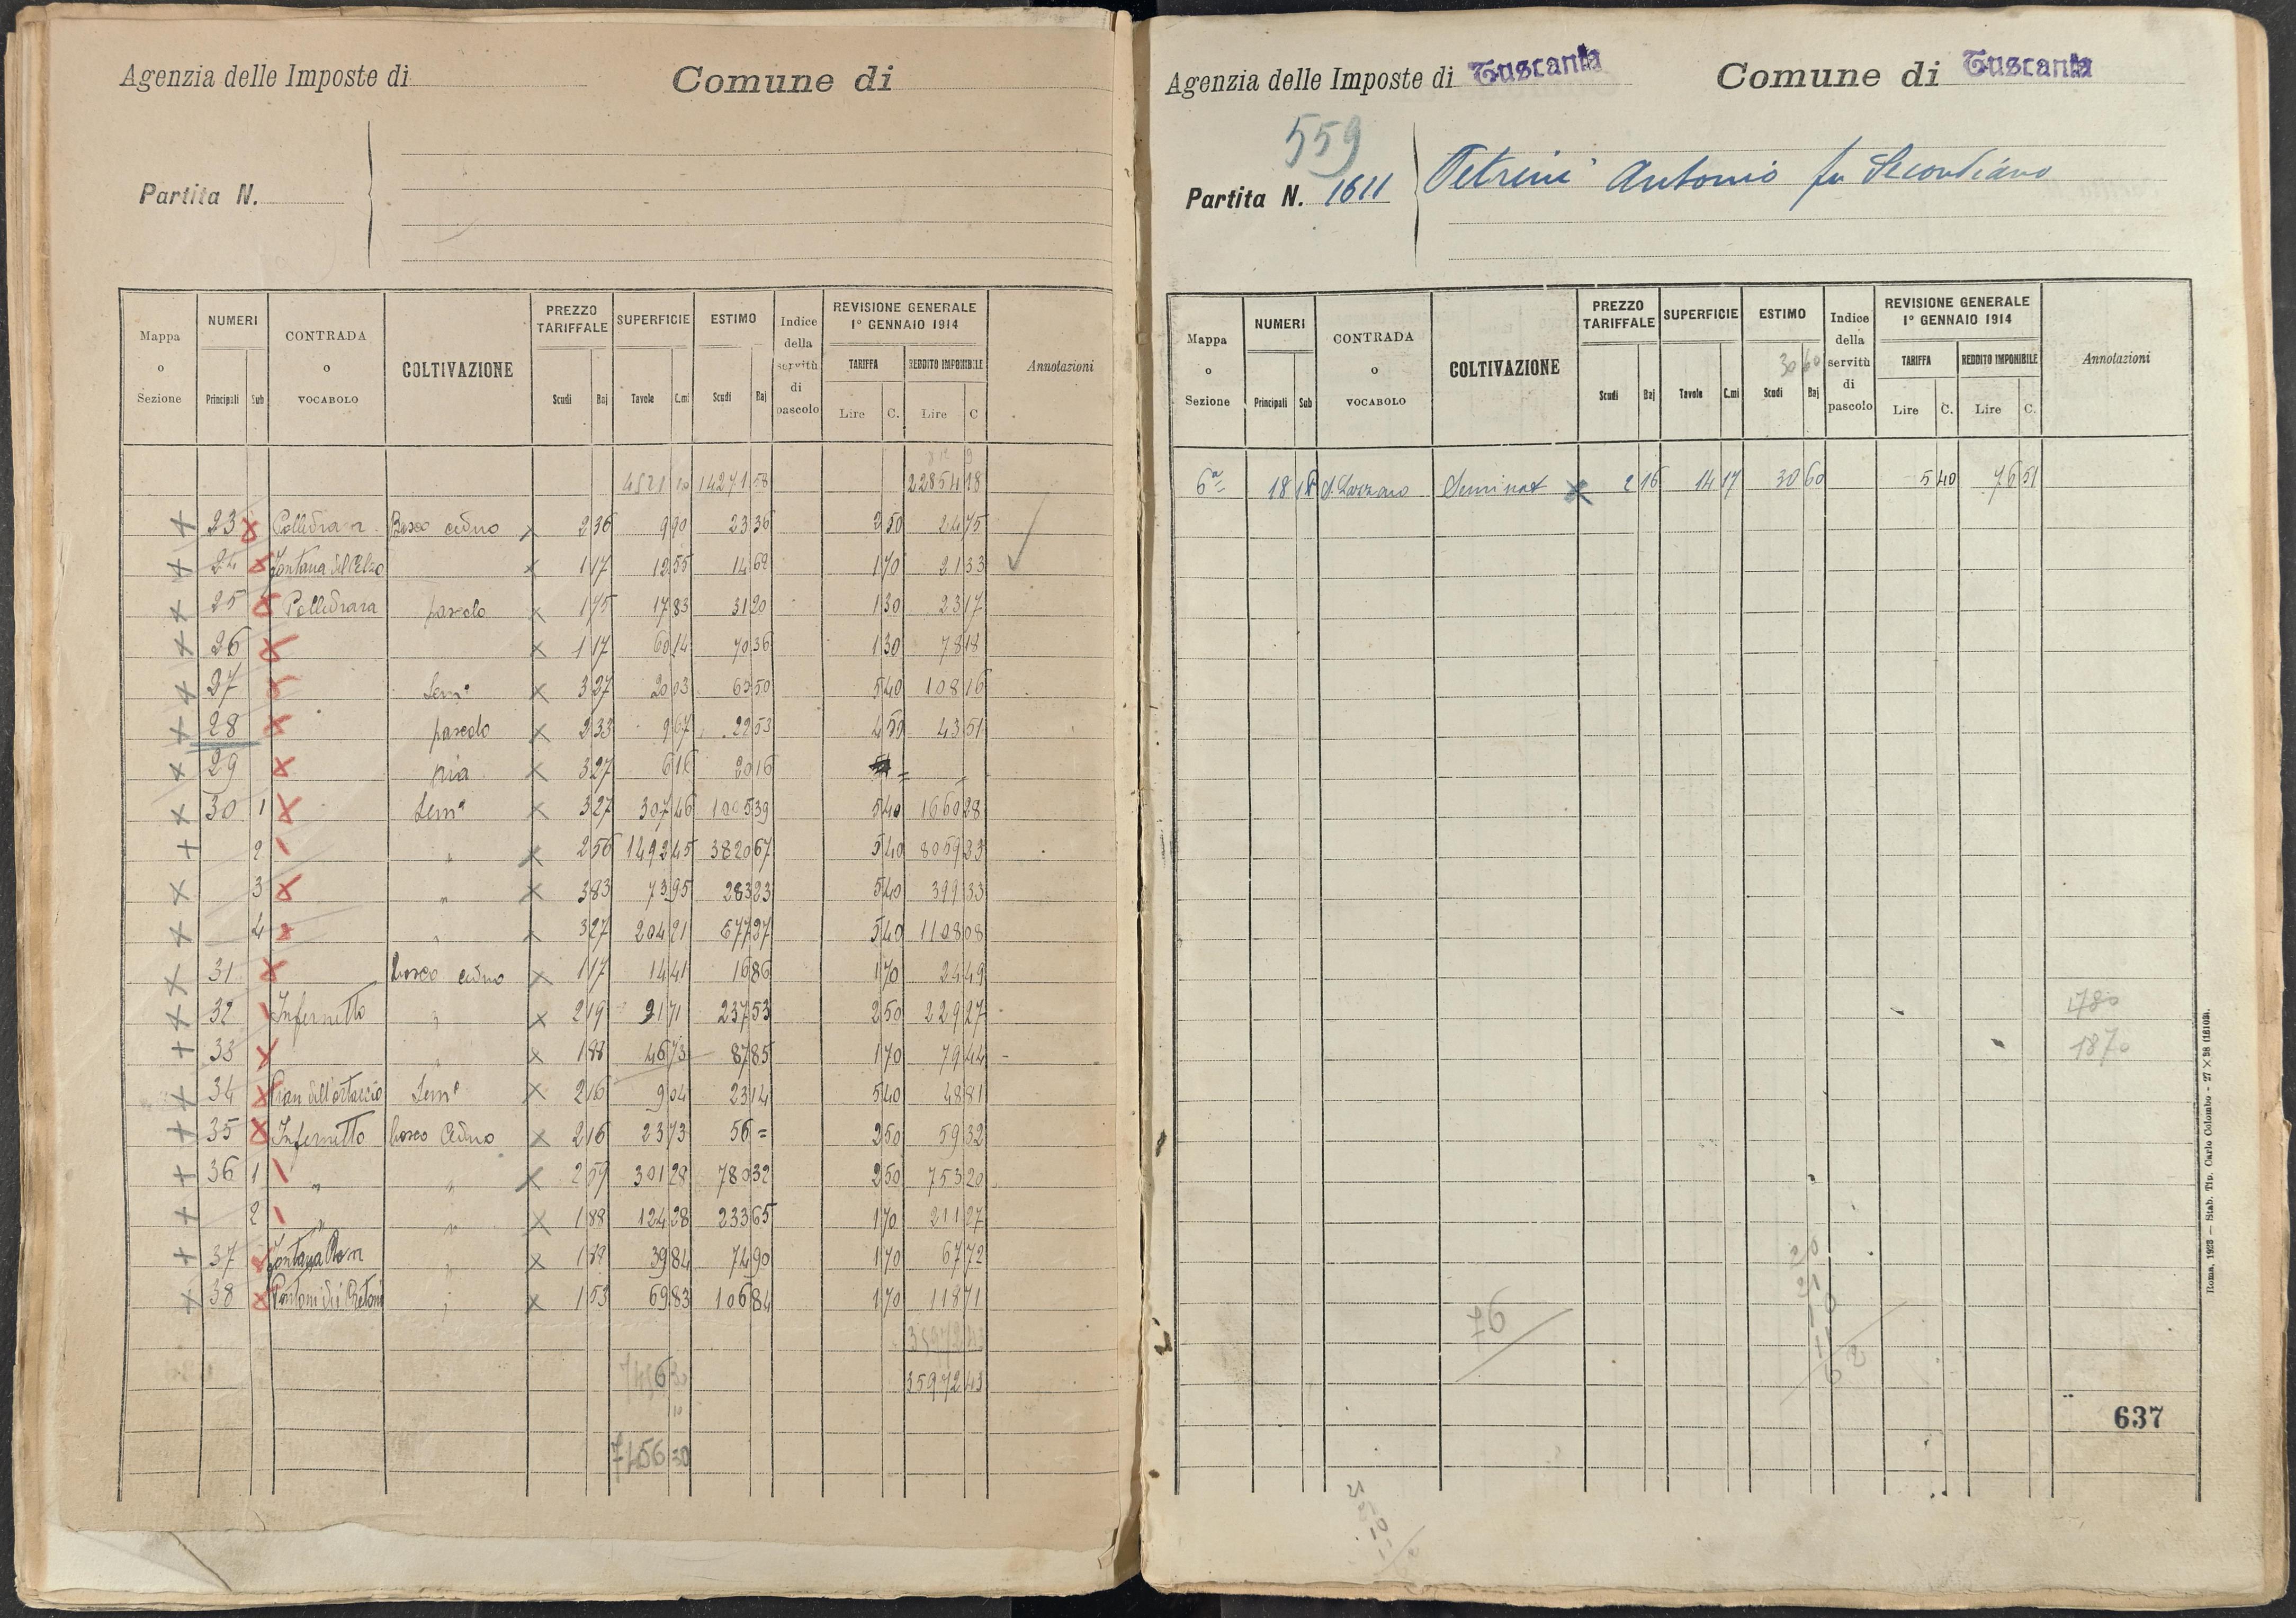 Agenzia delle Imposte di
Comune di
Partita N.
Mappa o Sezione | NUMERI Principali Sub | CONTRADA o VOCABOLO | COLTIVAZIONE | PREZZO TARIFFALE Scudi Baj | SUPERFICIE Tavole C.mi | ESTIMO Scudi Baj | Indice della servitù di pascolo | REVISIONE GENERALE 1° GENNAIO 1914 TARIFFA Lire C. REDDITO IMPONIBILE Lire C | Annotazioni
14271 58 22854 18
+ 23 x Bosco ceduo x 2 36 9 90 23 36 2 50 24 75
+ 24 x x 1 17 12 55 14 68 1 70 21 33
+ 25 x Polledrara pascolo x 1 75 17 83 31 20 1 30 23 17
+ 26 x x 1 17 60 14 70 36 1 30 78 18
+ 27 x Sem° x 3 27 20 03 65 50 5 40 108 16
+ 28 x pascolo x 2 33 9 67 22 53 4 50 43 51
x 29 x x 3 27 6 16 20 16 =
x 30 1 x Sem° x 3 27 307 46 1005 39 5 40 1660 28
+ 2 " x 2 56 1492 45 3820 67 5 40 8059 23
x 3 x " x 3 83 73 95 283 23 5 40 399 33
x 4 x " x 3 27 204 21 677 97 5 40 1108 08
x 31 x bosco ceduo x 1 17 14 41 16 86 1 70 24 49
+ 32 Infernetto " x 2 19 91 71 237 53 2 50 229 27
+ 33 x " x 1 88 46 73 87 85 1 70 79 44
+ 34 x Sem° x 2 16 9 04 23 14 5 40 48 81
+ 35 x Infernetto bosco Ceduo x 2 16 23 73 56 = 2 50 59 32
+ 36 1 " " x 2 59 301 28 780 32 2 50 753 20
+ 2 " " x 1 88 124 28 233 65 1 70 211 27
+ 37 " x 1 88 39 84 74 90 1 70 67 72
x 38 x " x 1 53 69 83 106 84 1 70 118 71
35972 43
35972 43
10
7456 30
Agenzia delle Imposte di Tuscania
Comune di Tuscania
559
Partita N. 1611
Petrini Antonio fu Secondiano
Mappa o Sezione | NUMERI Principali Sub | CONTRADA o VOCABOLO | COLTIVAZIONE | PREZZO TARIFFALE Scudi Baj | SUPERFICIE Tavole C.mi | ESTIMO Scudi Baj | Indice della servitù di pascolo | REVISIONE GENERALE 1° GENNAIO 1914 TARIFFA Lire C. REDDITO IMPONIBILE Lire C. | Annotazioni
30 60
6ª 18 18 S. Lazzaro Seminat x 2 16 14 17 30 60 5 40 76 51
1780
1870
637
Roma, 1923 — Stab. Tip. Carlo Colombo - 27 × 38